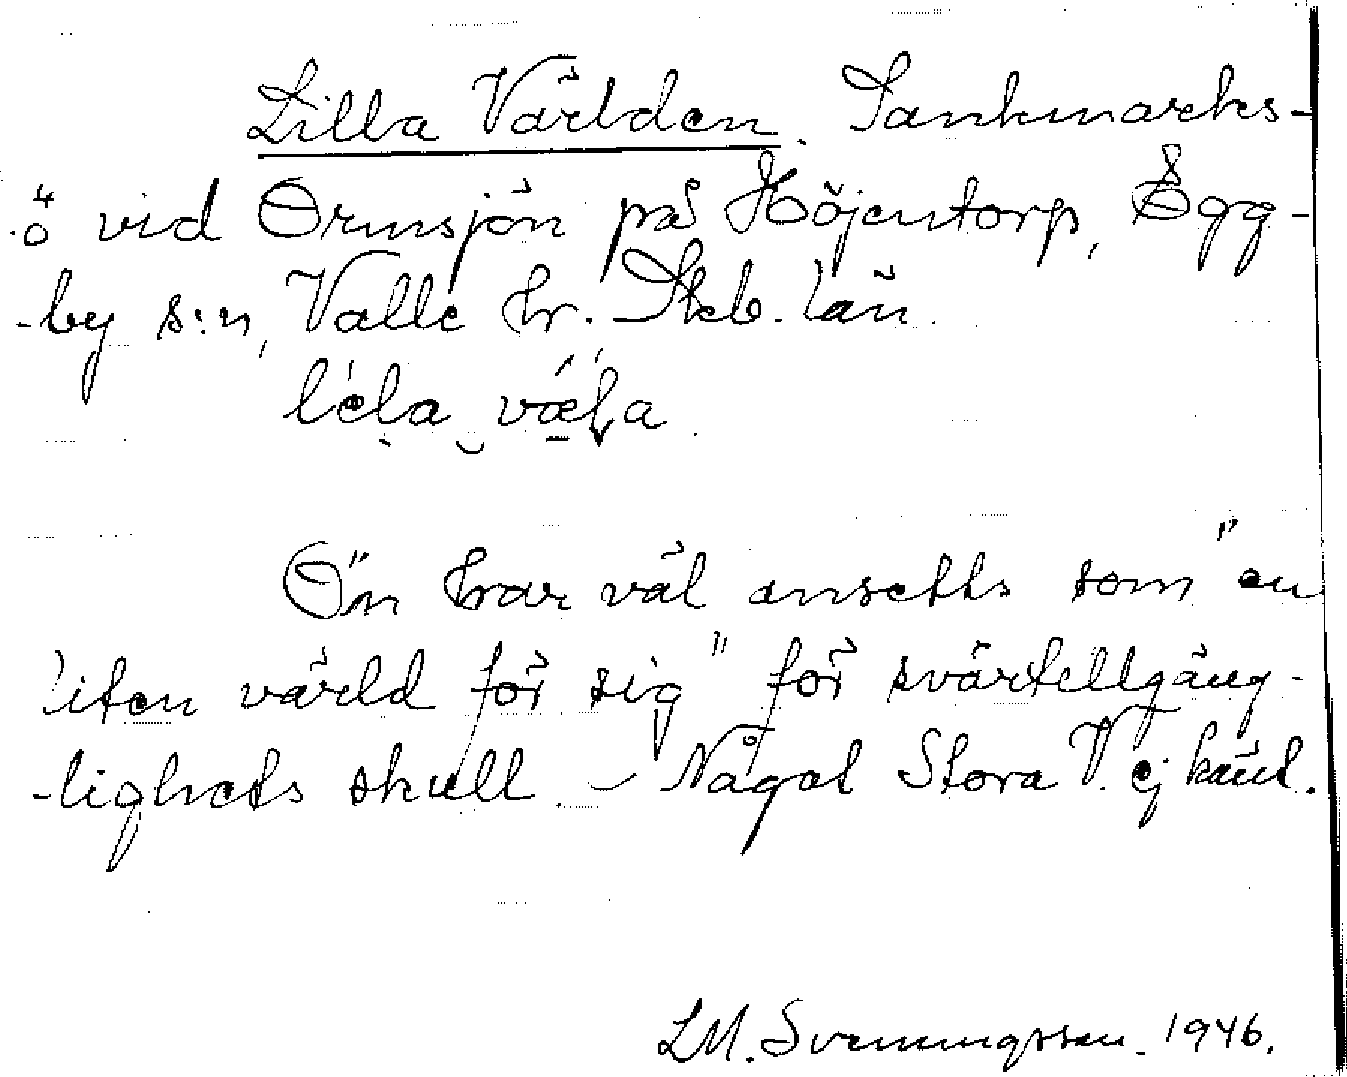 Lilla Världen. Sankmarks-
ö vid Ornsjön på Höjentorp, Ögg-
-by s:n, Valle hr. Skb. län.

Ön har väl ansetts som "en
liten värld för sig" för svårtillgäng-
-lighets skull. – Något Stora V. ej känt.
LM. Svenungsson. 1946.